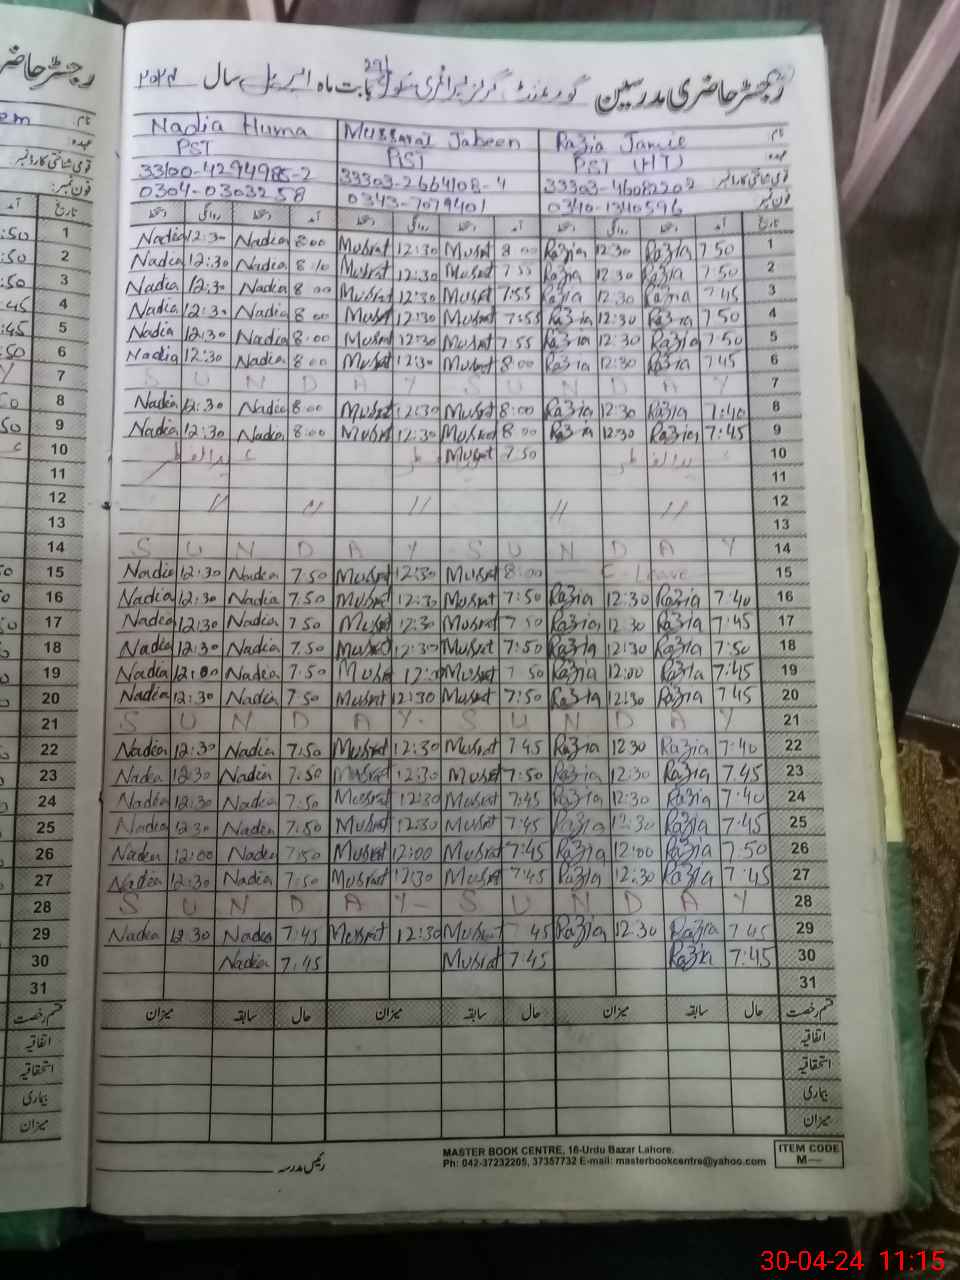 رجسٹر حاضری مدرسین گورنمنٹ گرلز پرائمری سکول بابت ماہ اپریل سال ۲۰۲۴
نام Razia Mussarat Jabeen Nadia Huma
عہدہ PST (HT) PST PST
قومی شناختی کارڈ نمبر 33303-46082202 33303-2664108-4 33100-4294985-2
فون نمبر 0340-1340596 0343-7079401 0304-0303258
تاریخ آمد دستخط روانگی دستخط آمد دستخط روانگی دستخط آمد دستخط روانگی دستخط تاریخ
Nadia 12:30 Nadia 8:00 Musrat 12:30 Musrat 8:00 Razia 12:30 Razia 7:50 1
Nadia 12:30 Nadia 8:10 Musrat 12:30 Musrat 7:55 Razia 12:30 Razia 7:50 2
Nadia 12:30 Nadia 8:00 Musrat 12:30 Musrat 7:55 Razia 12:30 Razia 7:45 3
Nadia 12:30 Nadia 8:00 Musrat 12:30 Musrat 7:55 Razia 12:30 Razia 7:50 4
Nadia 12:30 Nadia 8:00 Musrat 12:30 Musrat 7:55 Razia 12:30 Razia 7:50 5
Nadia 12:30 Nadia 8:00 Musrat 12:30 Musrat 8:00 Razia 12:30 Razia 7:45 6
S U N D A Y S U N D A Y 7
Nadia 12:30 Nadia 8:00 Musrat 12:30 Musrat 8:00 Razia 12:30 Razia 7:40 8
Nadia 12:30 Nadia 8:00 Musrat 12:30 Musrat 8:00 Razia 12:30 Razia 7:45 9
عید الفطر Musrat 7:50 عید الفطر 10
11
// // // // // 12
13
S U N D A Y S U N D A Y 14
Nadia 12:30 Nadia 7:50 Musrat 12:30 Musrat 8:00 C-Leave 15
Nadia 12:30 Nadia 7:50 Musrat 12:30 Musrat 7:50 Razia 12:30 Razia 7:40 16
Nadia 12:30 Nadia 7:50 Musrat 12:30 Musrat 7:50 Razia 12:30 Razia 7:45 17
Nadia 12:30 Nadia 7:50 Musrat 12:30 Musrat 7:50 Razia 12:30 Razia 7:50 18
Nadia 12:00 Nadia 7:50 Musrat Musrat 7:50 Razia 12:00 Razia 7:45 19
Nadia 12:30 Nadia 7:50 Musrat 12:30 Musrat 7:50 Razia 12:30 Razia 7:45 20
S U N D A Y S U N D A Y 21
Nadia 12:30 Nadia 7:50 Musrat 12:30 Musrat 7:45 Razia 12:30 Razia 7:40 22
Nadia 12:30 Nadia 7:50 Musrat 12:30 Musrat 7:50 Razia 12:30 Razia 7:45 23
Nadia 12:30 Nadia 7:50 Musrat 12:30 Musrat 7:45 Razia 12:30 Razia 7:40 24
Nadia 12:30 Nadia 7:50 Musrat 12:30 Musrat 7:45 Razia 12:30 Razia 7:45 25
Nadia 12:00 Nadia 7:50 Musrat 12:00 Musrat 7:45 Razia 12:00 Razia 7:50 26
Nadia 12:30 Nadia 7:50 Musrat 12:30 Musrat 7:45 Razia 12:30 Razia 7:45 27
S U N D A Y S U N D A Y 28
Nadia 12:30 Nadia 7:45 Musrat 12:30 Musrat 7:45 Razia 12:30 Razia 7:45 29
Nadia 7:45 Musrat 7:45 Razia 7:45 30
31
قسم رخصت حال سابقہ میزان حال سابقہ میزان حال سابقہ میزان قسم رخصت
اتفاقیہ اتفاقیہ
استحقاقیہ استحقاقیہ
بیماری بیماری
میزان میزان
رئیس مدرسہ
MASTER BOOK CENTRE, 16-Urdu Bazar Lahore.
Ph: 042-37232205, 37357732 E-mail: masterbookcentre@yahoo.com
ITEM CODE
M—
30-04-24 11:15